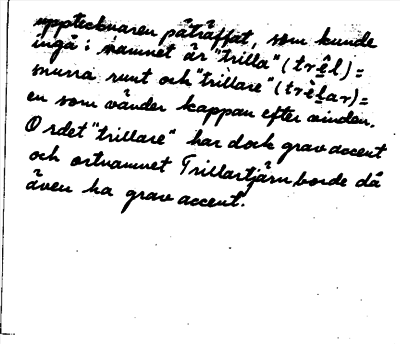 upptecknaren påträffat, som kunde
ingå i namnet är "trilla" (trɛ̂l) =
snurra runt och "trillare" (trɛ̀lar) =
en som vänder kappan efter vinden.
Ordet "trillare" har dock grav accent
och ortnamnet Trillartjärn borde då
även ha grav accent.